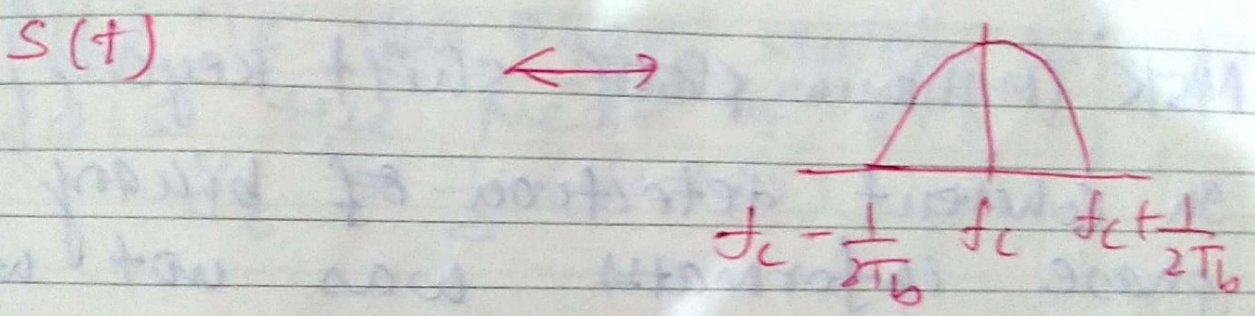 S(t)
fc - 1/2Tb fc fc + 1/2Tb